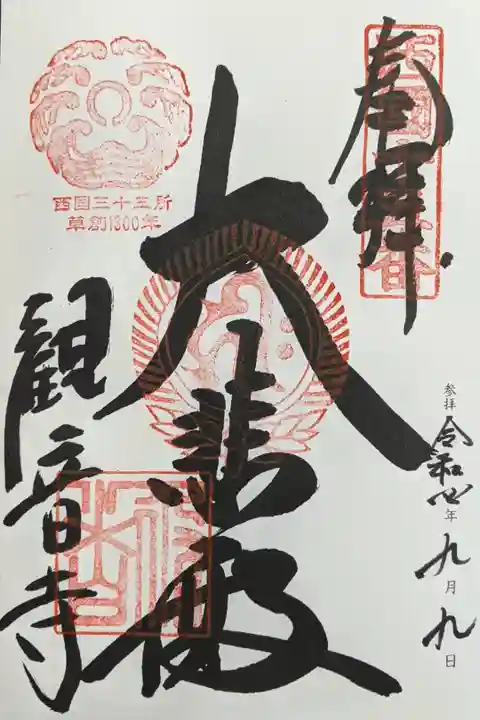 奉拝
大悲殿
観音寺
西国三十三所
草創1300年
参拝 令和四年九月九日